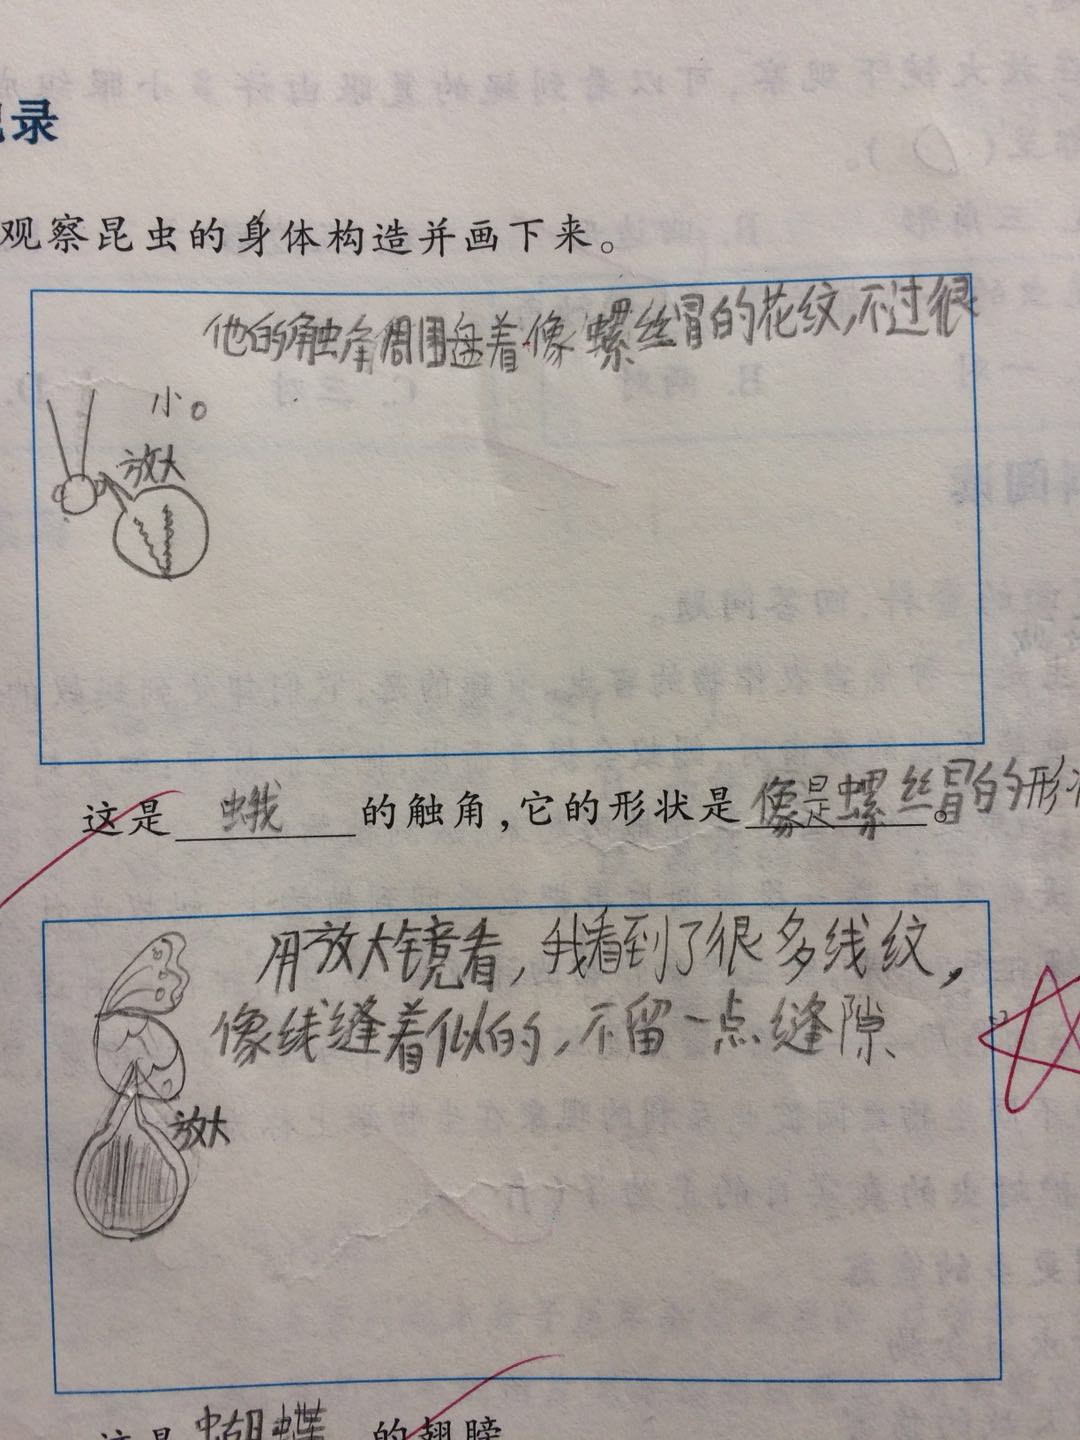 录
观察昆虫的身体构造并画下来。
他的触角周围盘着像螺丝冒的花纹,不过很
小。
放大
这是 蛾 的触角,它的形状是 像是螺丝冒的形状。
用放大镜看,我看到了很多线纹,
像线缝着似的,不留一点缝隙
放大
这是 蝴蝶 的翅膀